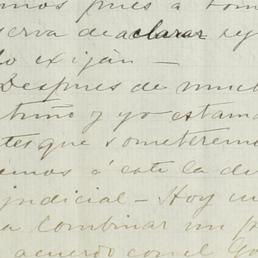 mos pues a tom
serva de aclarar
lo exijan —
Despues de much
y yo estamo
tes que someteremo
emos á este la de
judicial — Hoy
a combinar un p
acuerdo con el Go